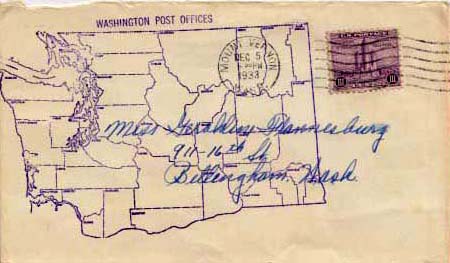 WASHINGTON POST OFFICES
MOUNT VERNON
DEC 5
PM
1933
WASH.
U.S. POSTAGE
Miss Geraldine Pannesburg
911-16th St
Bellingham, Wash.